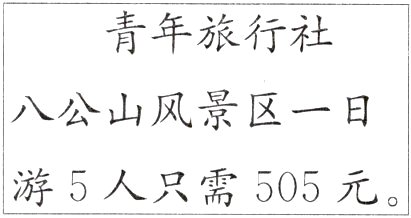 青年旅行社
八公山风景区一日
游5人只需505元。